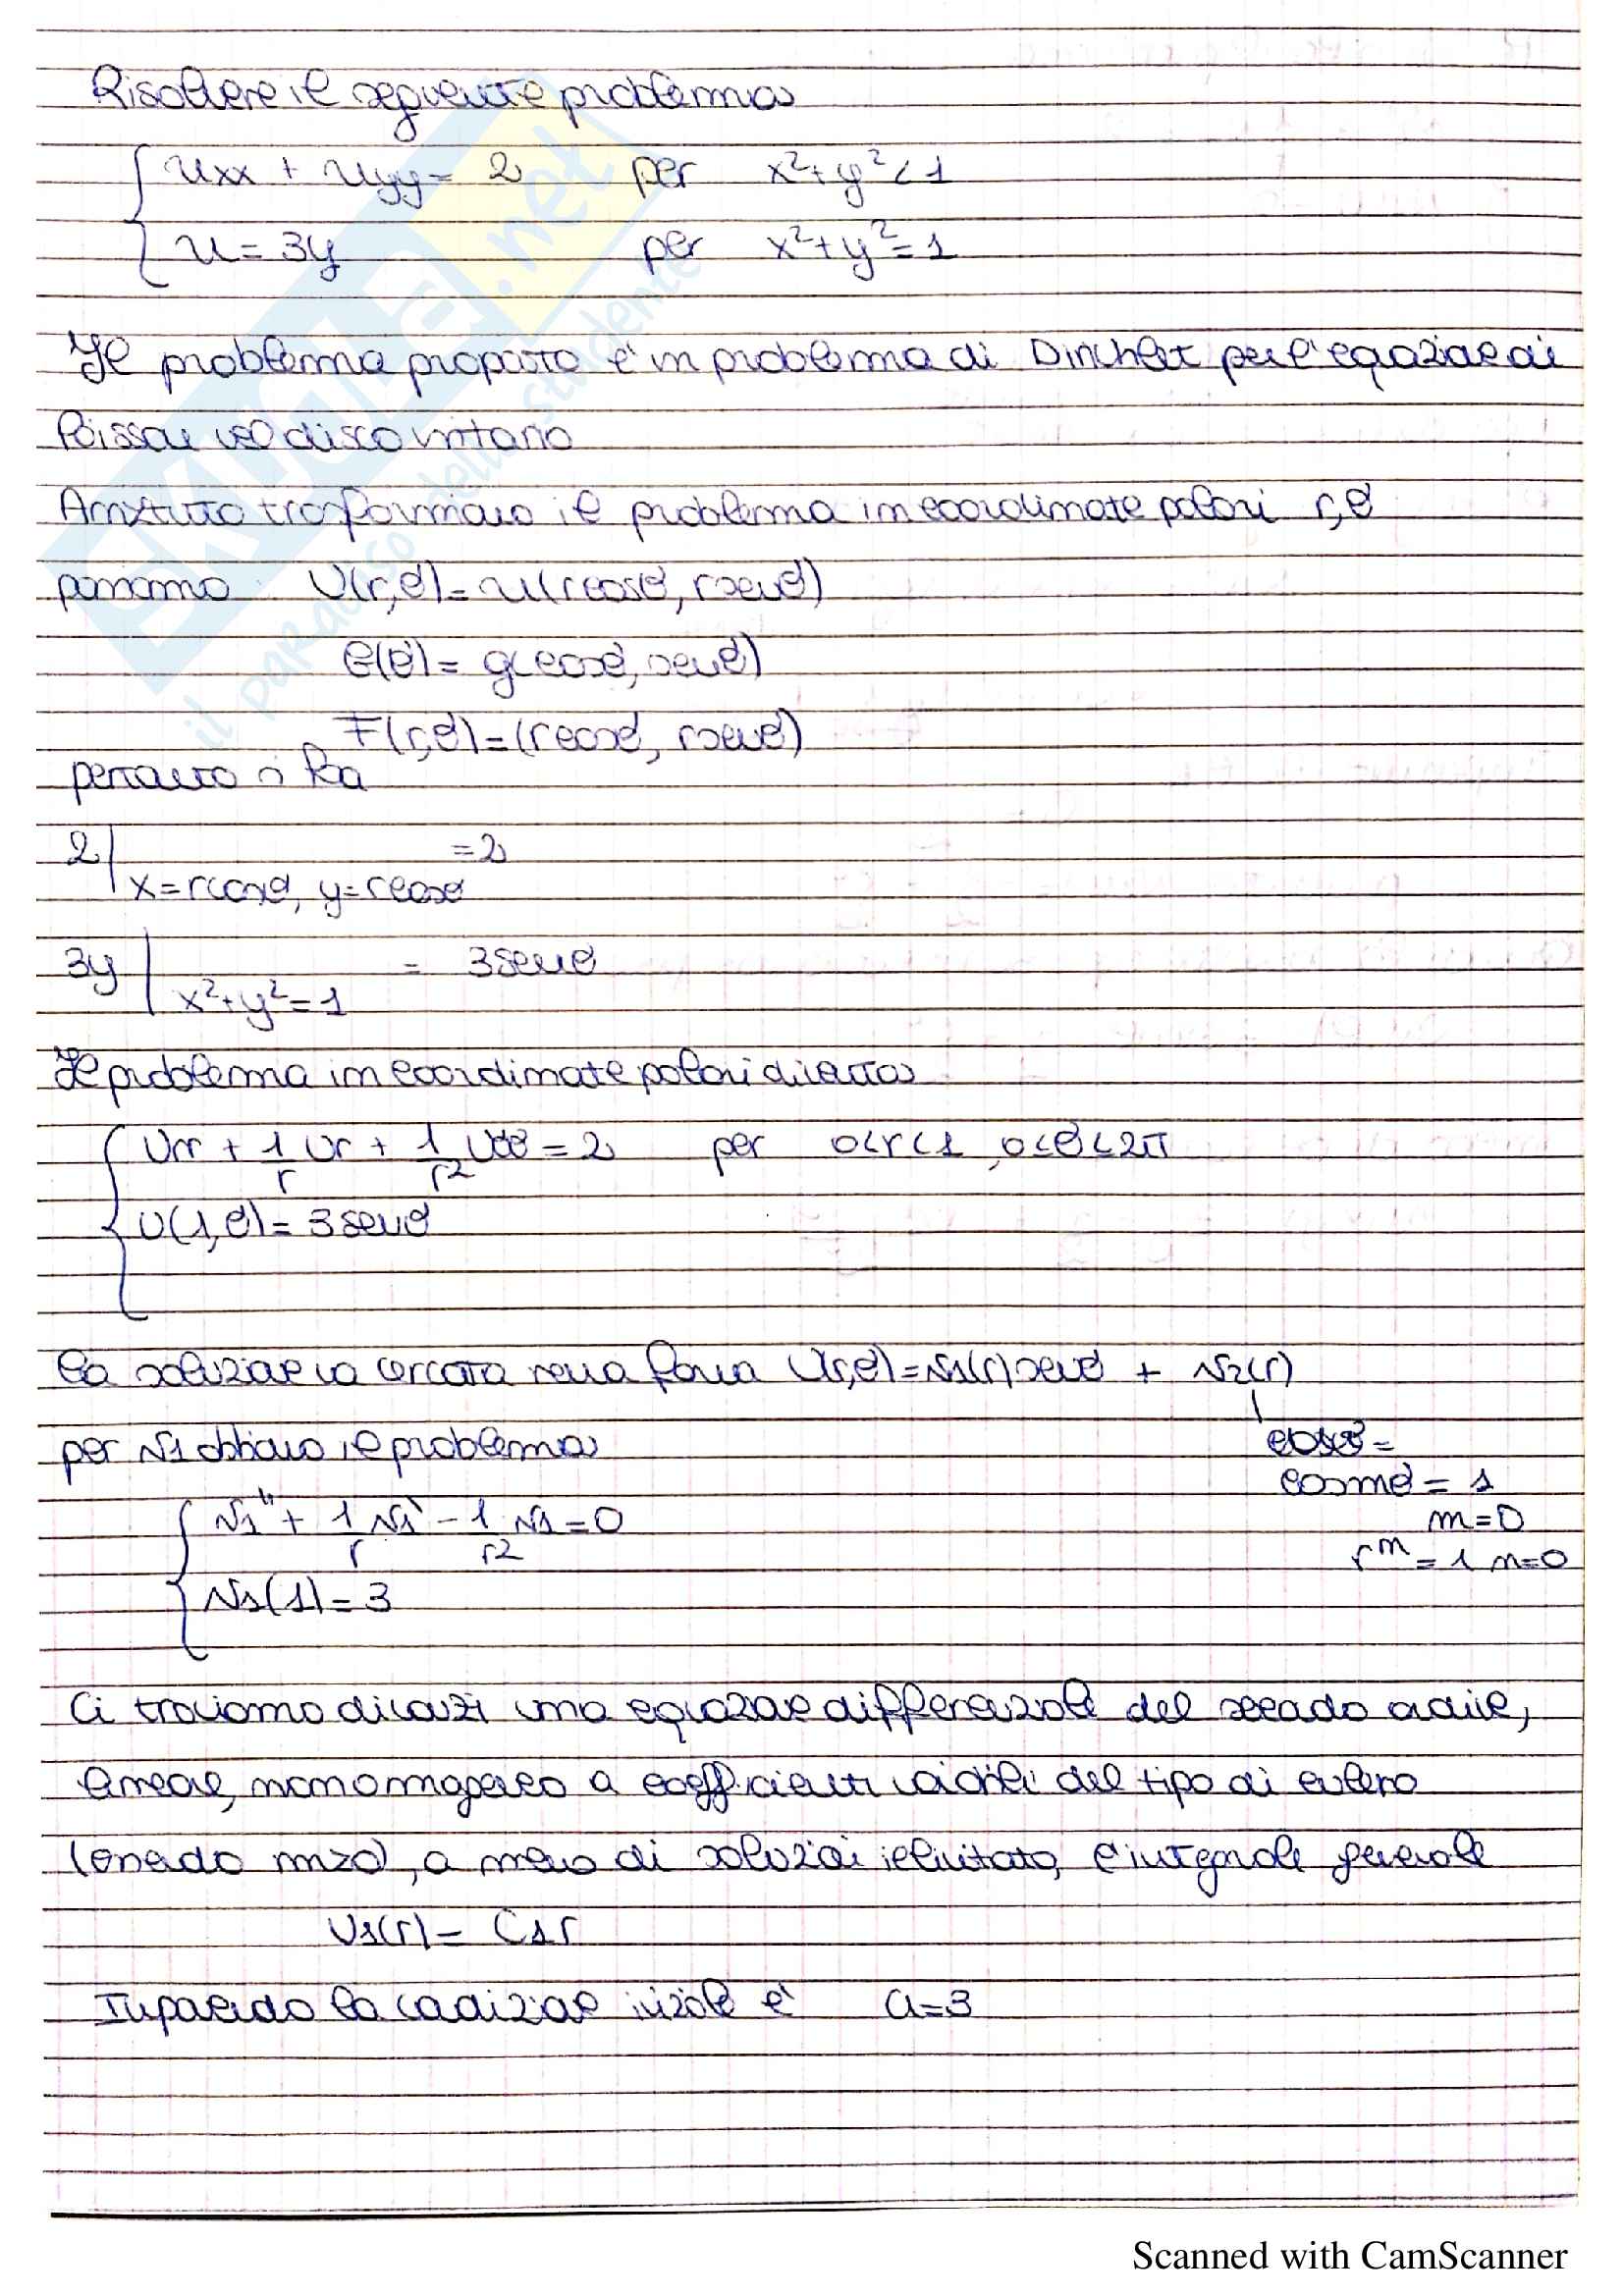 Risolvere il seguente problema
{ uxx + uyy = 2 per x²+y²<1
u = 3y per x²+y²=1
Il problema proposto è un problema di Dirichlet per l'equazione di
Poisson nel disco unitario
Anzitutto trasformiamo il problema in coordinate polari r,θ
poniamo U(r,θ)=u(rcosθ, rsenθ)
G(θ)= g(cosθ, senθ)
F(r,θ)=(rcosθ, rsenθ)
pertanto si ha
2| =2
x=rcosθ, y=rcosθ
3y | = 3senθ
x²+y²=1
Il problema in coordinate polari diventa
{ Urr + 1/r Ur + 1/r² Uθθ = 2 per 0<r<1, 0<θ<2π
U(1,θ)= 3senθ
La soluzione va cercata nella forma U(r,θ)=v1(r)senθ + v2(r)
per v1 abbiamo il problema
cosmθ = 1
m=0
r^m = 1 m=0
{ v1'' + 1/r v1' - 1/r² v1=0
v1(1)=3
Ci troviamo dinanzi una equazione differenziale del secondo ordine,
lineare, non omogenea a coefficienti variabili del tipo di eulero
(essendo m≥0), a meno di soluzioni illimitato, l'integrale generale
V1(r)= C1r
Imponendo la condizione iniziale è C1=3
SKUOLA.net
il paradiso dello studente
Scanned with CamScanner